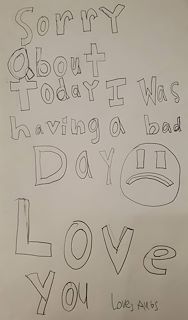 Sorry
About
Today I was
having a bad
Day
Love
you
Love,